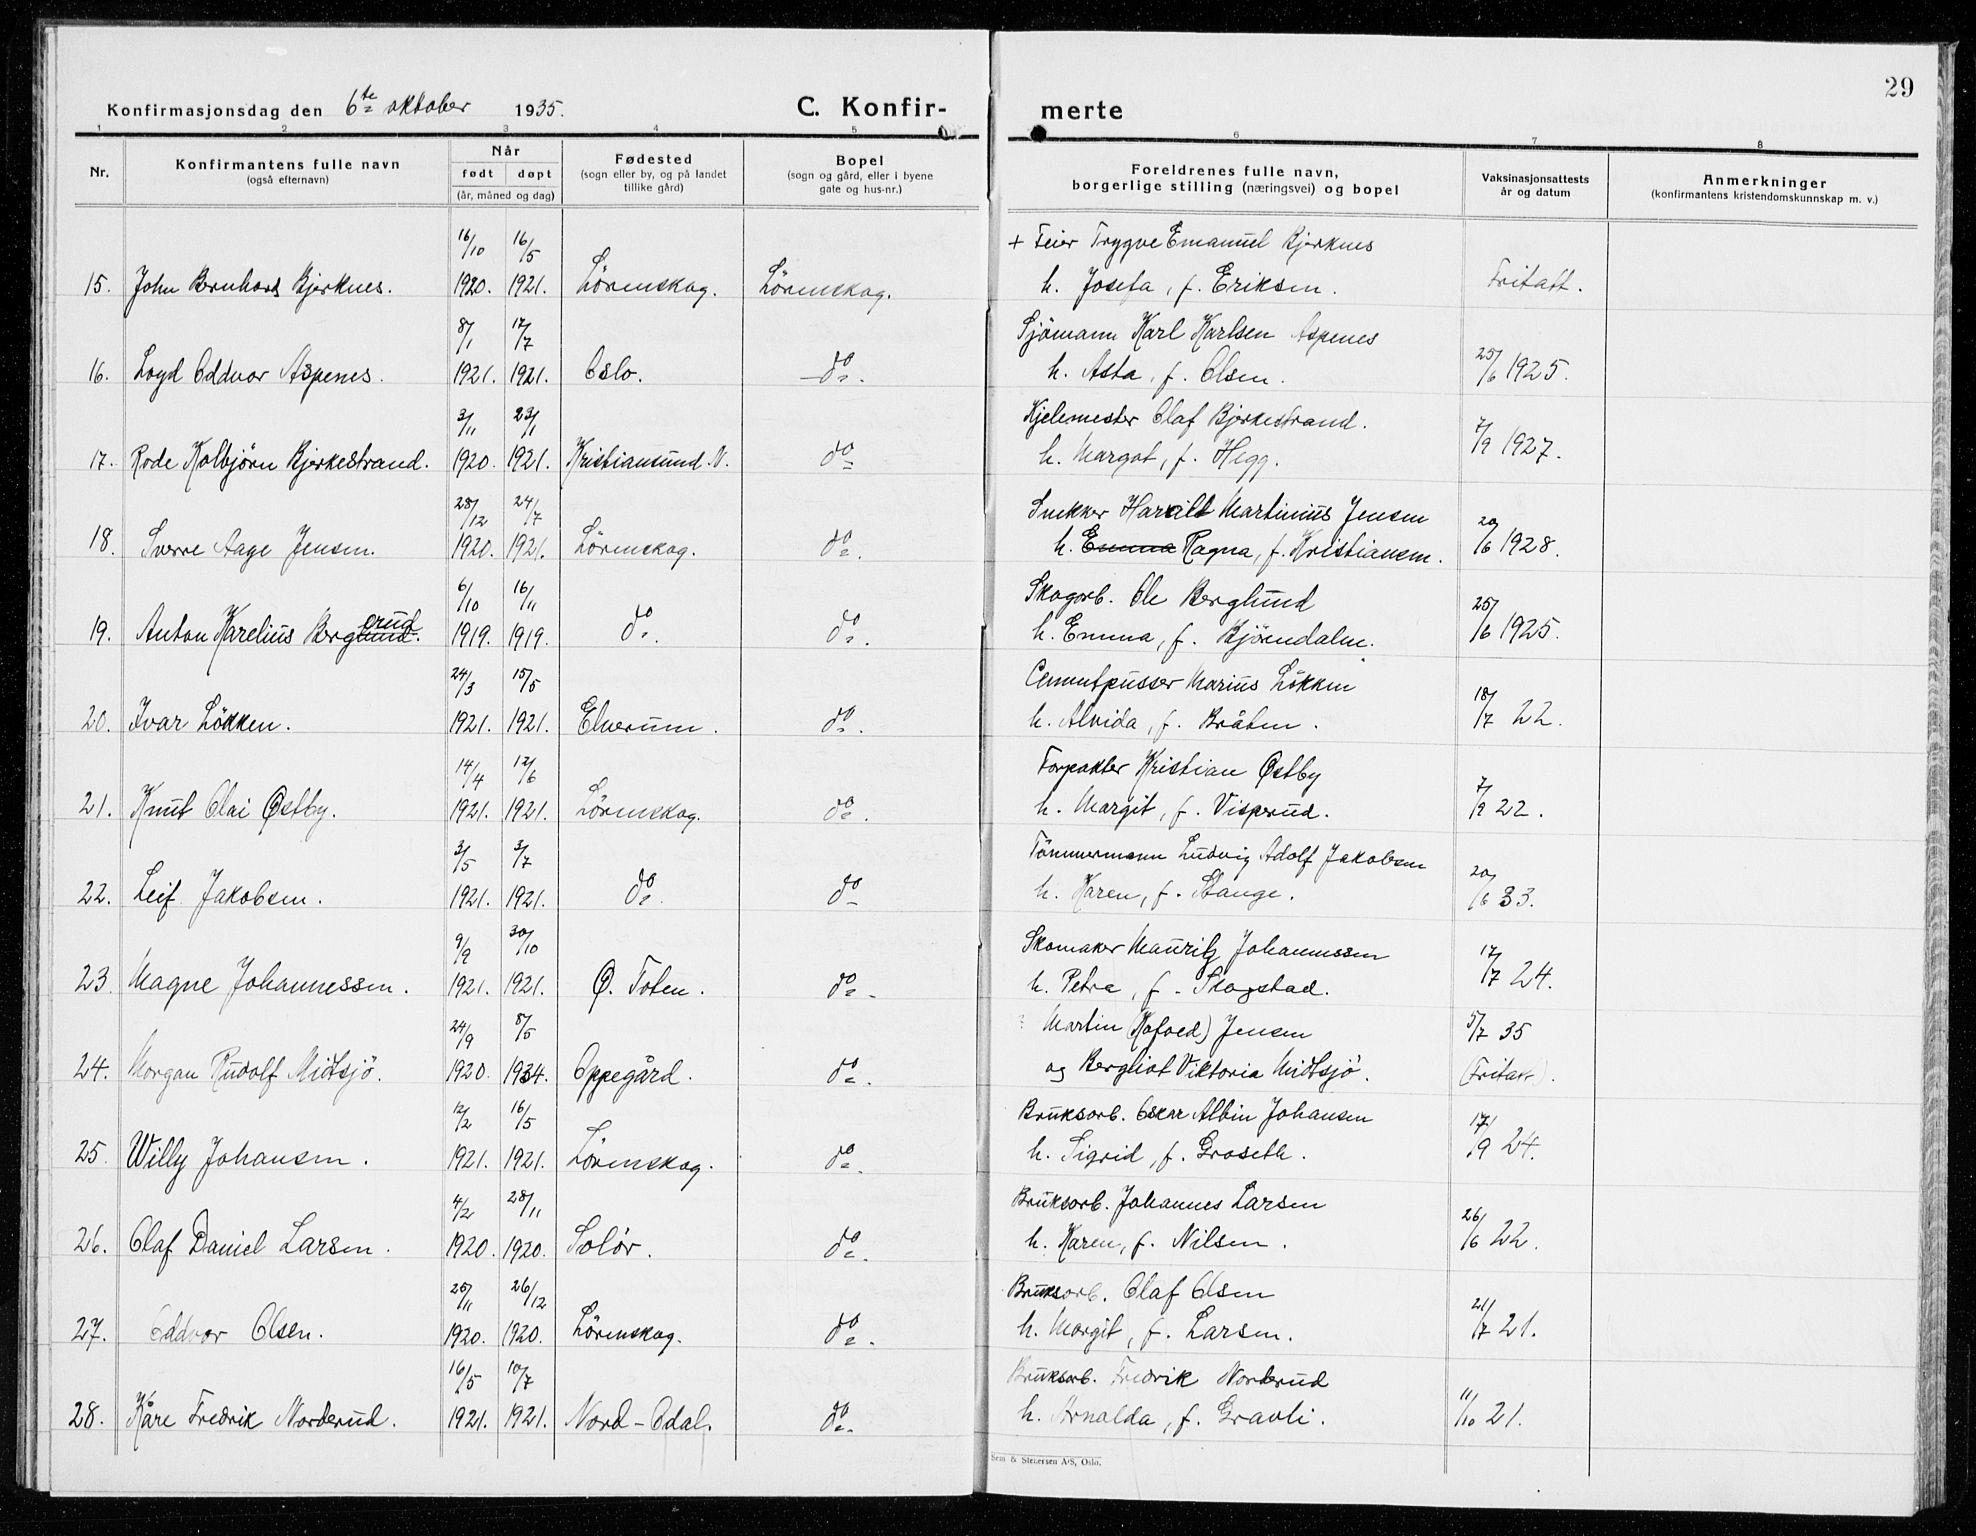 29
Konfirmasjonsdag den 6te oktober 1935. C. Konfir- merte
1 2 3 4 5 6 7 8
Nr. Konfirmantens fulle navn (også efternavn) Når født døpt (år, måned og dag) Fødested (sogn eller by, og på landet tillike gård) Bopel (sogn og gård, eller i byene gate og hus-nr.) Foreldrenes fulle navn, borgerlige stilling (næringsvei) og bopel Vaksinasjonsattests år og datum Anmerkninger (konfirmantens kristendomskunnskap m. v.)
16/10 16/5 + Feier Trygve Emanuel Bjerknes
15. John Bernhard Bjerknes. 1920. 1921. Lörenskog. Lörenskog. h. Josefa, f. Eriksen. Fritatt.
8/1 17/7 Sjömann Karl Karlsen Aspenes
16. Loyd Oddvar Aspenes. 1921. 1921. Oslo. do. h. Asta, f. Olsen. 25/6 1925.
3/11 23/1 Kjelemester Olaf Bjerkestrand.
17. Rode Kolbjörn Bjerkestrand. 1920. 1921. Kristiansund. N. do h. Margot, f. Hegg. 7/9 1927.
28/12 24/7 Snekker Harald Martinius Jensen
18. Sverre Aage Jensen. 1920. 1921. Lörenskog. do. h. Emma Ragna, f. Kristiansen. 20/6 1928.
6/10 16/11 Skogarb. Ole Berglund
19. Anton Karelius Berglund. erud 1919. 1919. do. do. h. Emma, f. Bjöendalen. 25/6 1925.
24/3 15/5 Cementpusser Marius Lökken
20. Ivar Lökken. 1921. 1921. Elverum. do. h. Alvida, f. Bråten. 18/7 22.
14/4 12/6 Forpakter Kristian Østby
21. Knut Olai Østby. 1921. 1921. Lörenskog. do. h. Margit, f. Visperud. 7/9 22.
3/5 3/7 Tömmermann Ludvig Adolf Jakobsen
22. Leif Jakobsen. 1921. 1921. do. do h. Karen, f. Stange. 20/6 33.
9/9 30/10 Skomaker Mauritz Johannessen
23. Magne Johannessen. 1921. 1921. Ø. Toten. do. h. Petra, f. Skogstad. 17/7 24.
24/9 8/5 Martin (Kofoed) Jensen 5/7 35
24. Morgan Rudolf Midtsjö. 1920. 1934. Oppegård. do. og Bergliot Viktoria Midtsjö. (Fritatt).
12/2 16/5 Bruksarb. Oskar Albin Johansen
25. Willy Johansen. 1921. 1921. Lörenskog. do. h. Sigrid, f. Groseth. 17/9 24.
4/2 28/11 Bruksarb. Johannes Larsen
26. Olaf Daniel Larsen. 1920. 1920. Solör. do. h. Karen, f. Nilsen. 26/6 22.
25/11 26/12 Bruksarb. Olaf Olsen
27. Oddvar Olsen. 1920. 1920. Lörenskog. do. h. Margit, f. Larsen. 21/7 21.
16/5 10/7 Bruksarb. Fredrik Norderud
28. Kåre Fredrik Norderud. 1921. 1921. Nord-Odal. do. h. Arnalda, f. Gravli. 11/10 21.
Sem & Stenersen A/S, Oslo.